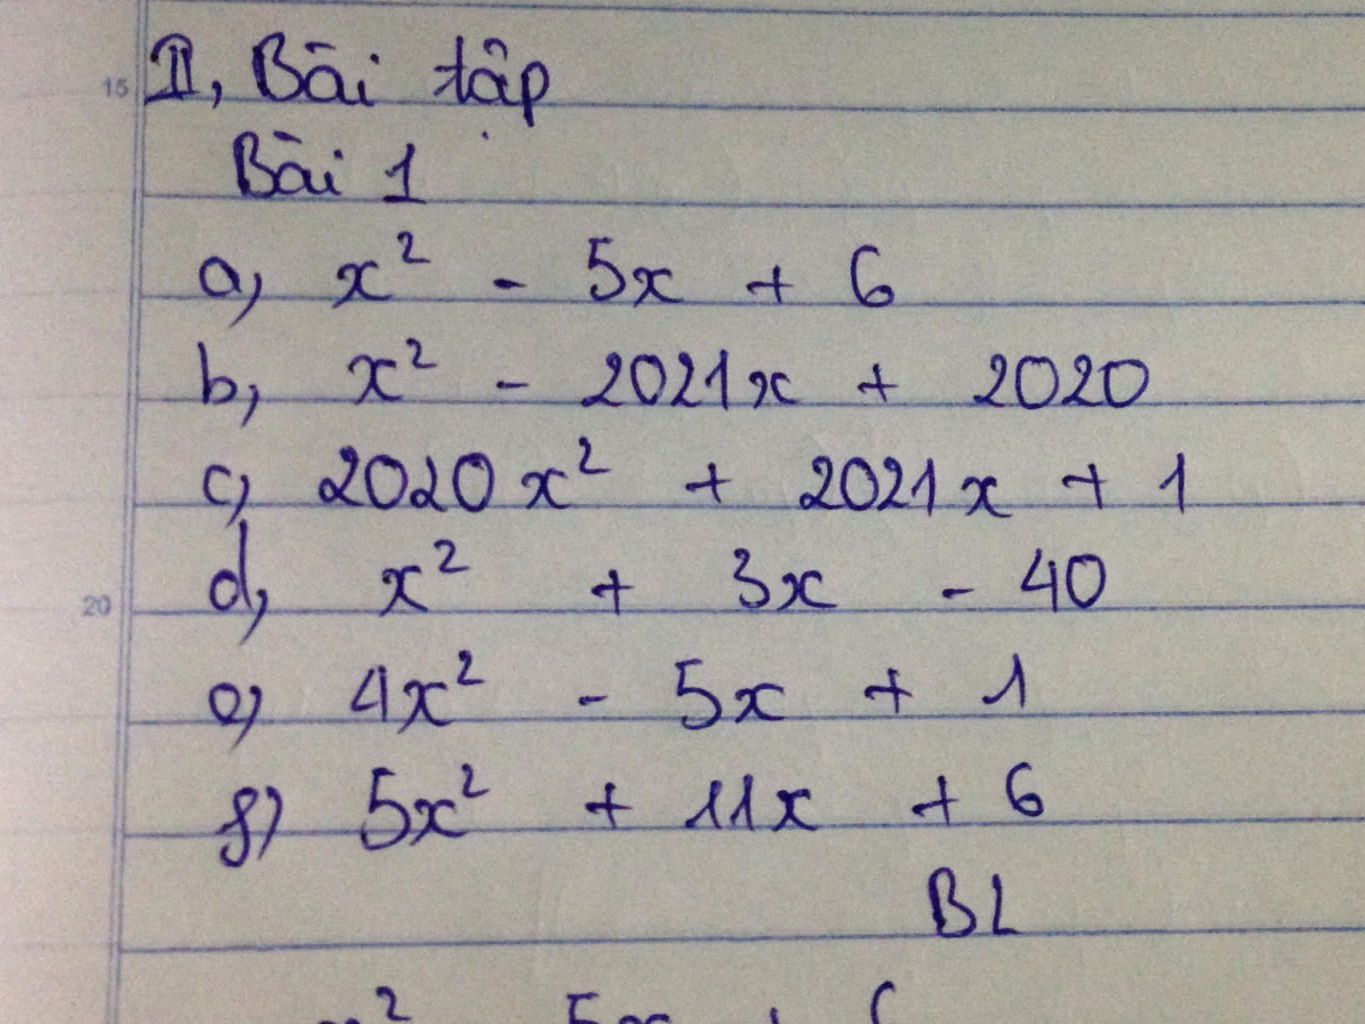 15
II, Bài tập
Bài 1
a, x² - 5x + 6
b, x² - 2021x + 2020
c, 2020x² + 2021x + 1
d, x² + 3x - 40
20
e, 4x² - 5x + 1
f, 5x² + 11x + 6
BL
x² 5x + 6